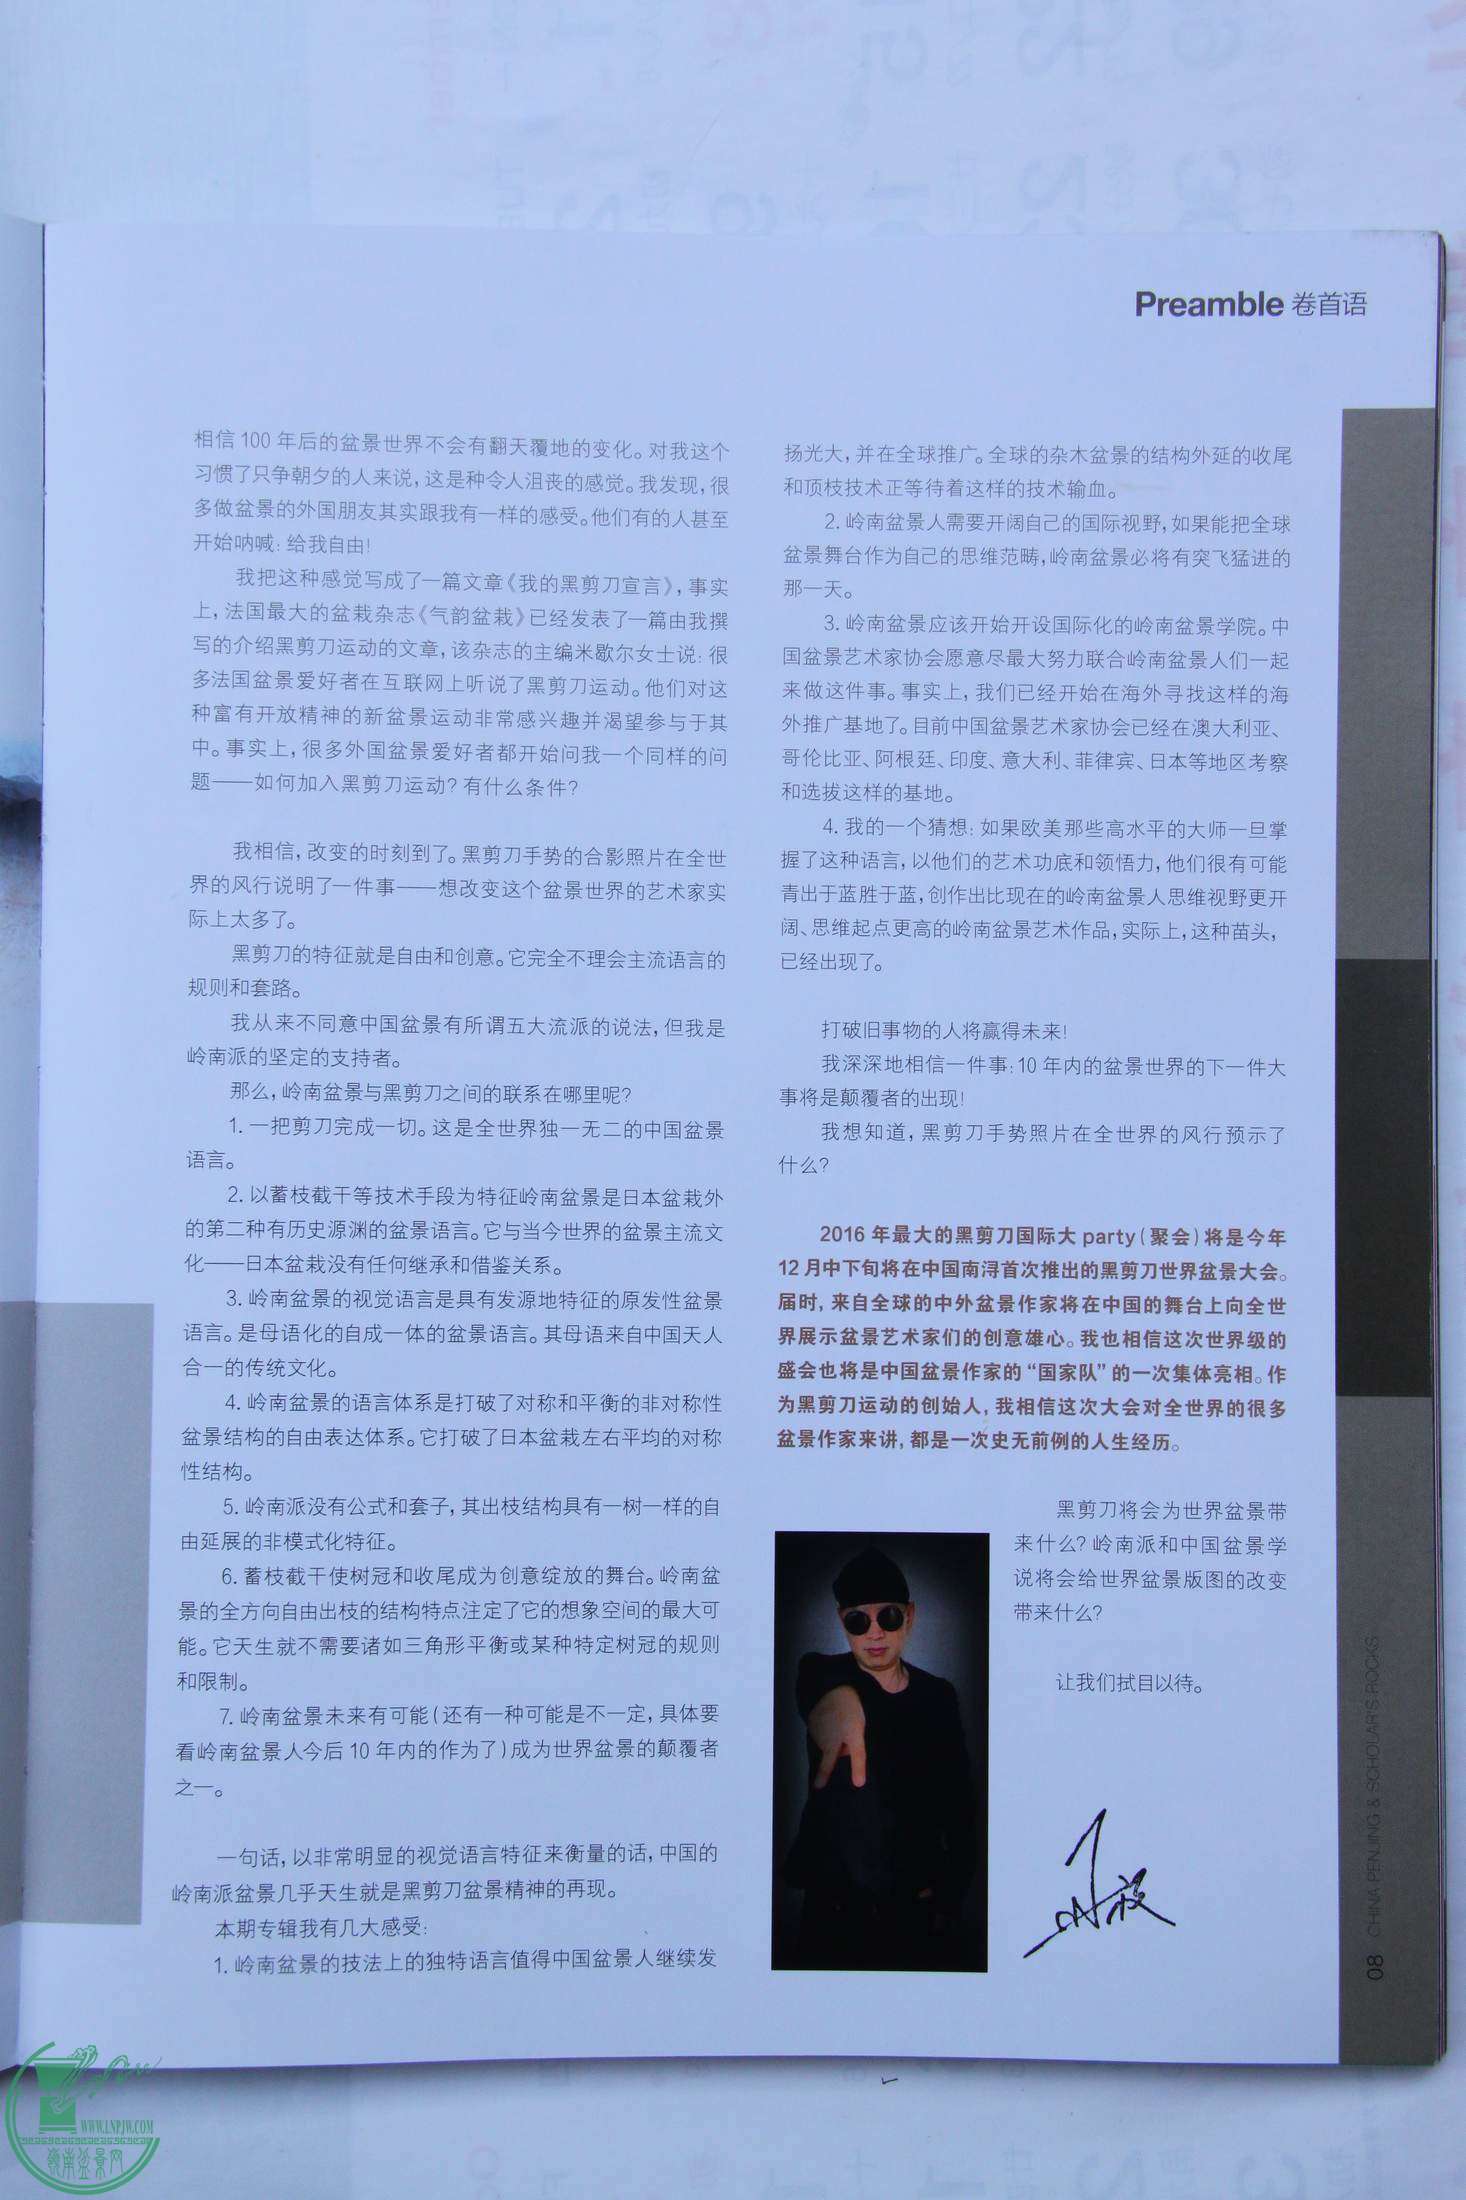 Preamble 卷首语
相信 100 年后的盆景世界不会有翻天覆地的变化。对我这个
习惯了只争朝夕的人来说，这是种令人沮丧的感觉。我发现，很
多做盆景的外国朋友其实跟我有一样的感受。他们有的人甚至
开始呐喊：给我自由！
我把这种感觉写成了一篇文章《我的黑剪刀宣言》，事实
上，法国最大的盆栽杂志《气韵盆栽》已经发表了一篇由我撰
写的介绍黑剪刀运动的文章，该杂志的主编米歇尔女士说：很
多法国盆景爱好者在互联网上听说了黑剪刀运动。他们对这
种富有开放精神的新盆景运动非常感兴趣并渴望参与于其
中。事实上，很多外国盆景爱好者都开始问我一个同样的问
题——如何加入黑剪刀运动？有什么条件？
我相信，改变的时刻到了。黑剪刀手势的合影照片在全世
界的风行说明了一件事——想改变这个盆景世界的艺术家实
际上太多了。
黑剪刀的特征就是自由和创意。它完全不理会主流语言的
规则和套路。
我从来不同意中国盆景有所谓五大流派的说法，但我是
岭南派的坚定的支持者。
那么，岭南盆景与黑剪刀之间的联系在哪里呢？
1. 一把剪刀完成一切。这是全世界独一无二的中国盆景
语言。
2. 以蓄枝截干等技术手段为特征岭南盆景是日本盆栽外
的第二种有历史源渊的盆景语言。它与当今世界的盆景主流文
化——日本盆栽没有任何继承和借鉴关系。
3. 岭南盆景的视觉语言是具有发源地特征的原发性盆景
语言。是母语化的自成一体的盆景语言。其母语来自中国天人
合一的传统文化。
4. 岭南盆景的语言体系是打破了对称和平衡的非对称性
盆景结构的自由表达体系。它打破了日本盆栽左右平均的对称
性结构。
5. 岭南派没有公式和套子，其出枝结构具有一树一样的自
由延展的非模式化特征。
6. 蓄枝截干使树冠和收尾成为创意绽放的舞台。岭南盆
景的全方向自由出枝的结构特点注定了它的想象空间的最大可
能。它天生就不需要诸如三角形平衡或某种特定树冠的规则
和限制。
7. 岭南盆景未来有可能（还有一种可能是不一定，具体要
看岭南盆景人今后 10 年内的作为了）成为世界盆景的颠覆者
之一。
一句话，以非常明显的视觉语言特征来衡量的话，中国的
岭南派盆景几乎天生就是黑剪刀盆景精神的再现。
本期专辑我有几大感受：
1. 岭南盆景的技法上的独特语言值得中国盆景人继续发
扬光大，并在全球推广。全球的杂木盆景的结构外延的收尾
和顶枝技术正等待着这样的技术输血。
2. 岭南盆景人需要开阔自己的国际视野，如果能把全球
盆景舞台作为自己的思维范畴，岭南盆景必将有突飞猛进的
那一天。
3. 岭南盆景应该开始开设国际化的岭南盆景学院。中
国盆景艺术家协会愿意尽最大努力联合岭南盆景人们一起
来做这件事。事实上，我们已经开始在海外寻找这样的海
外推广基地了。目前中国盆景艺术家协会已经在澳大利亚、
哥伦比亚、阿根廷、印度、意大利、菲律宾、日本等地区考察
和选拔这样的基地。
4. 我的一个猜想：如果欧美那些高水平的大师一旦掌
握了这种语言，以他们的艺术功底和领悟力，他们很有可能
青出于蓝胜于蓝，创作出比现在的岭南盆景人思维视野更开
阔、思维起点更高的岭南盆景艺术作品，实际上，这种苗头，
已经出现了。
打破旧事物的人将赢得未来！
我深深地相信一件事：10 年内的盆景世界的下一件大
事将是颠覆者的出现！
我想知道，黑剪刀手势照片在全世界的风行预示了
什么？
2016 年最大的黑剪刀国际大 party（聚会）将是今年
12 月中下旬将在中国南浔首次推出的黑剪刀世界盆景大会。
届时，来自全球的中外盆景作家将在中国的舞台上向全世
界展示盆景艺术家们的创意雄心。我也相信这次世界级的
盛会也将是中国盆景作家的“国家队”的一次集体亮相。作
为黑剪刀运动的创始人，我相信这次大会对全世界的很多
盆景作家来讲，都是一次史无前例的人生经历。
黑剪刀将会为世界盆景带
来什么？岭南派和中国盆景学
说将会给世界盆景版图的改变
带来什么？
让我们拭目以待。
08 CHINA PENJING & SCHOLAR'S ROCKS
WWW.LNPJW.COM
岭南盆景网